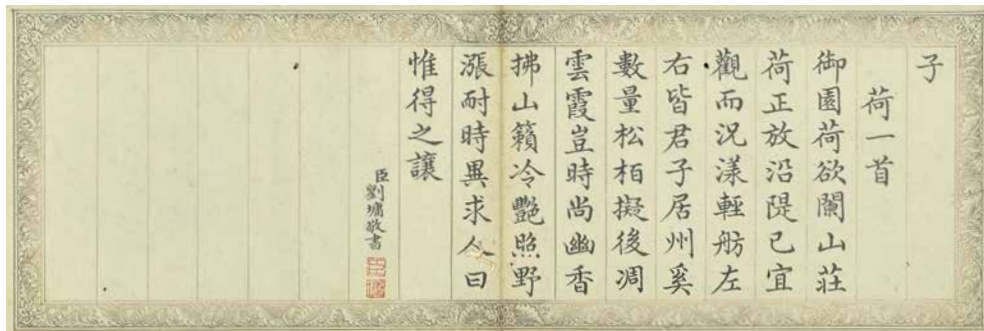 子
荷一首
御園荷欲闌山莊
荷正放沿隄已宜
觀而況漾輕舫左
右皆君子居州奚
數量松柏擬後凋
雲霞豈時尚幽香
拂山籟冷艷照野
漲耐時異求人曰
惟得之讓
臣劉墉敬書